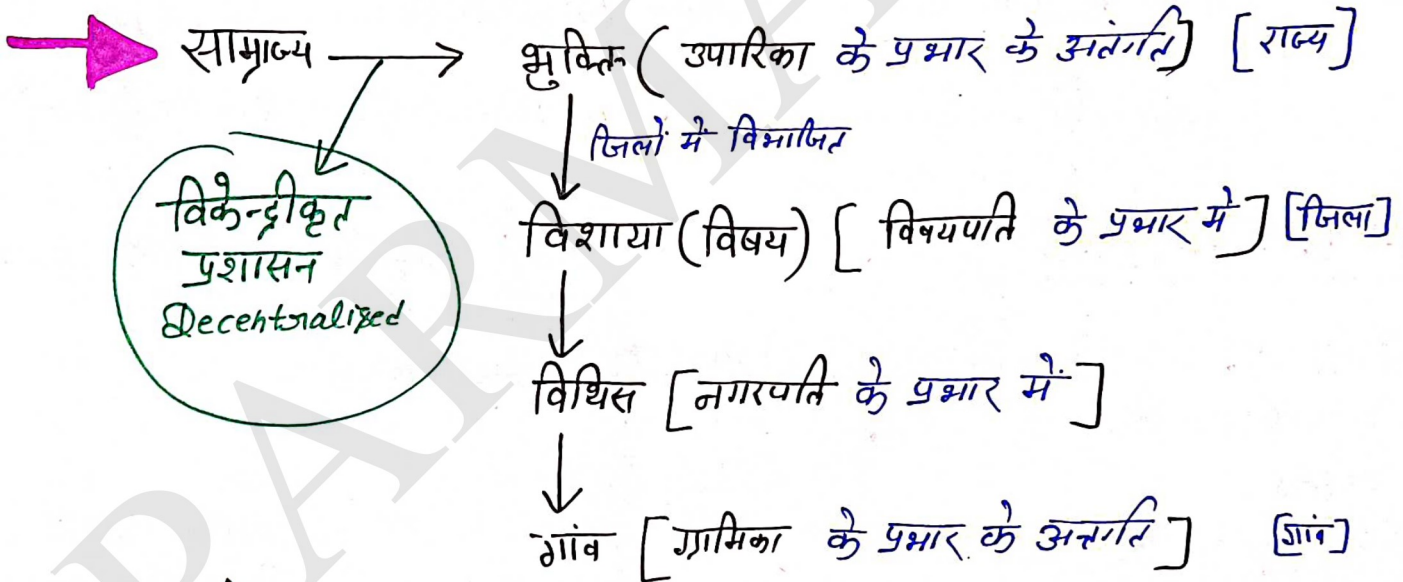 साम्राज्य → भुक्ति ( उपारिका के प्रभार के अतंर्गत ) [ राज्य ]
जिलों में विभाजित
विकेन्द्रीकृत
प्रशासन
Decentralized
विशाया (विषय) [ विषयपति के प्रभार मे ] [जिला]
विथिस [ नगरपति के प्रभार में ]
गांव [ ग्रामिका के प्रभार के अन्तर्गत ] [गांव]
PARMA